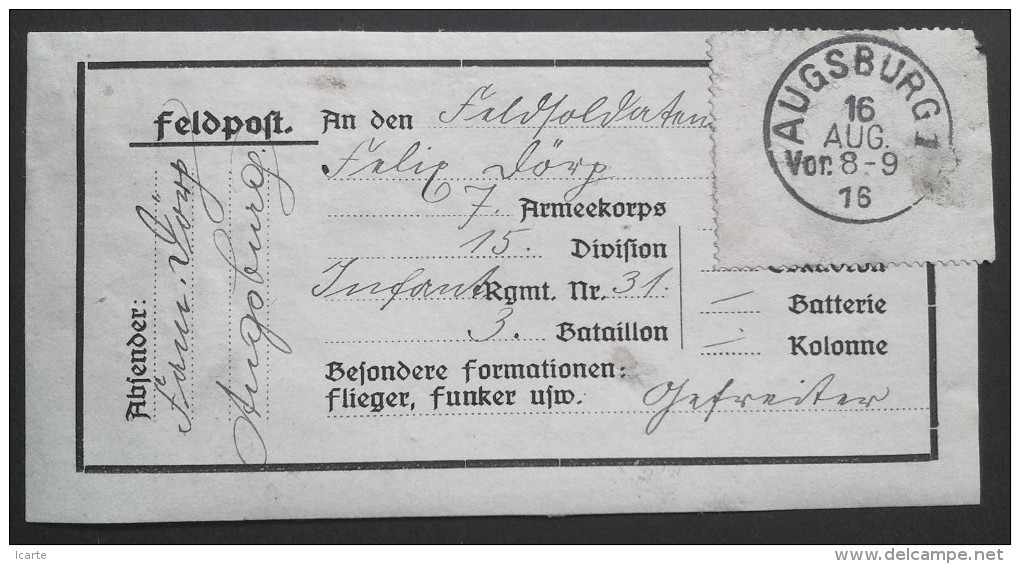 Feldpost. An den Feldsoldaten
Felix Dörp
7. Armeekorps
15. Division
Infant. Rgmt. Nr. 31.
3. Bataillon
Besondere Formationen:
Flieger, Funker usw. Gefreiter
Eskadron
— Batterie
— Kolonne
Absender:
Fam. Dörp
Augsburg.
AUGSBURG 1
16
AUG.
Vor. 8-9
16
Icarte
www.delcampe.net